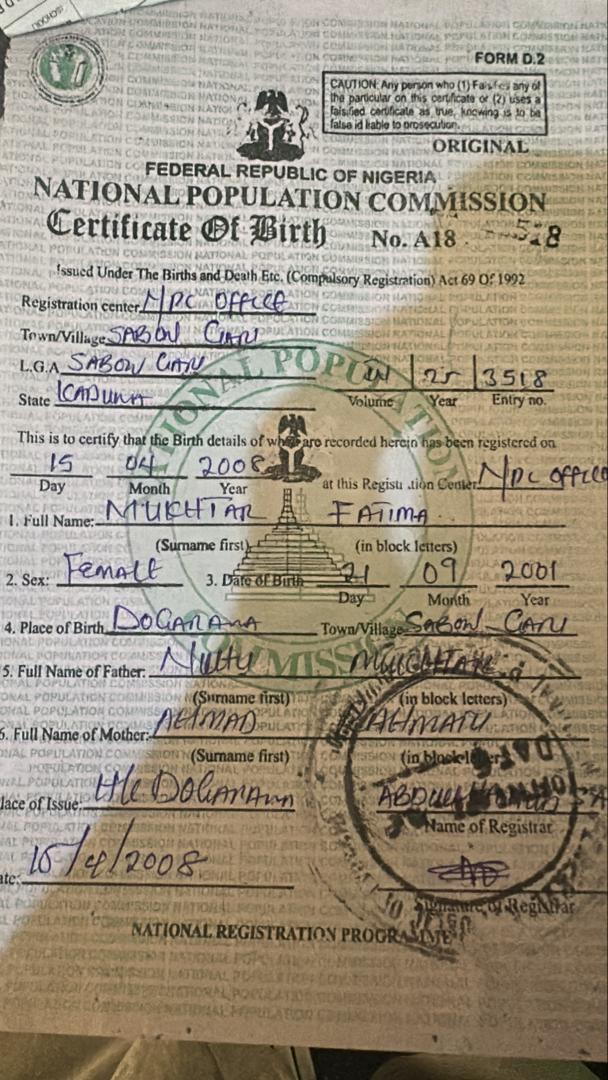 FORM D.2
CAUTION: Any person who (1) Falsifes any of
the particular on this certificate or (2) uses a
falsified certificate as true, knowing is to be
falsa id liable to prosecution.
ORIGINAL
FEDERAL REPUBLIC OF NIGERIA
NATIONAL POPULATION COMMISSION
Certificate Of Birth No. A18
Issued Under The Births and Death Etc. (Compulsory Registration) Act 69 Of 1992
Registration center NPC OFFICE
Town/Village SABON GARI
L.G.A SABON GARI
25 3518
State KADUNA Volume Year Entry no.
This is to certify that the Birth details of who are recorded herein has been registered on
15 04 2008 at this Registration Center NPC OFFICE
Day Month Year
1. Full Name: MUKHTAR FATIMA
(Surname first) (in block letters)
2. Sex: FEMALE 3. Date of Birth 21 09 2001
Day Month Year
4. Place of Birth DOGARAWA Town/Village SABON GARI
5. Full Name of Father: MUKHTAR
(Surname first) (in block letters)
6. Full Name of Mother: AHMAD
(Surname first) (in block letters)
lace of Issue: DOGARAWA
Name of Registrar
ate: 15/4/2008
Signature of Registrar
NATIONAL REGISTRATION PROGRAMME
NATIONAL POPULATION COMMISSION